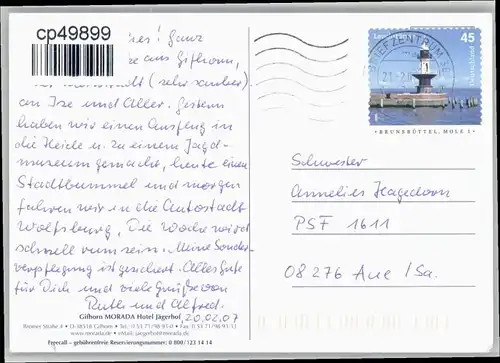 cp49899
es! Ganz
e aus Gifhorn,
(sehr sauber)
an Ise und Aller. Gestern
haben wir einen Ausflug in
die Heide u. zu einem Jagd-
museum gemacht, heute einen
Stadtbummel und morgen
fahren wir in die Autostadt
Wolfsburg. Die Woche wird
schnell rum sein. Meine Sonder-
verpflegung ist gesichert. Alles Gute
für Dich und viele Grüße von
Ruth und Alfred.
20.02.07
Gifhorn MORADA Hotel Jägerhof
Bromer Straße 4 · D-38518 Gifhorn · Tel. 0 53 71/98 93-0 · Fax 0 53 71/98 93-
www.morada.de · email:
Freecall – gebührenfreie Reservierungsnummer: 0 800/123 14 14
45
Deutschland
BRIEFZENTRUM
BRUNSBÜTTEL, MOLE 1
Schwester
Annelies Hagedorn
PSF 1611
08276 Aue/Sa.